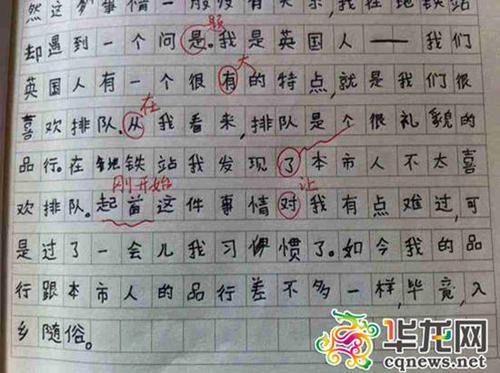 然这事情一般没有关系,我在地铁站
题
却遇到一个问是。我是英国人——我们
大
英国人有一个很有的特点,就是我们很
在
喜欢排队,从我看来,排队是个很礼貌的
品行。在地铁站我发现了本市人不太喜
刚开始 让
欢排队。起首这件事情对我有点难过,可
是过了一会儿我习惯了。如今我的品
行跟本市人的品行差不多一样,毕竟,入
乡随俗。
华龙网
cqnews.net